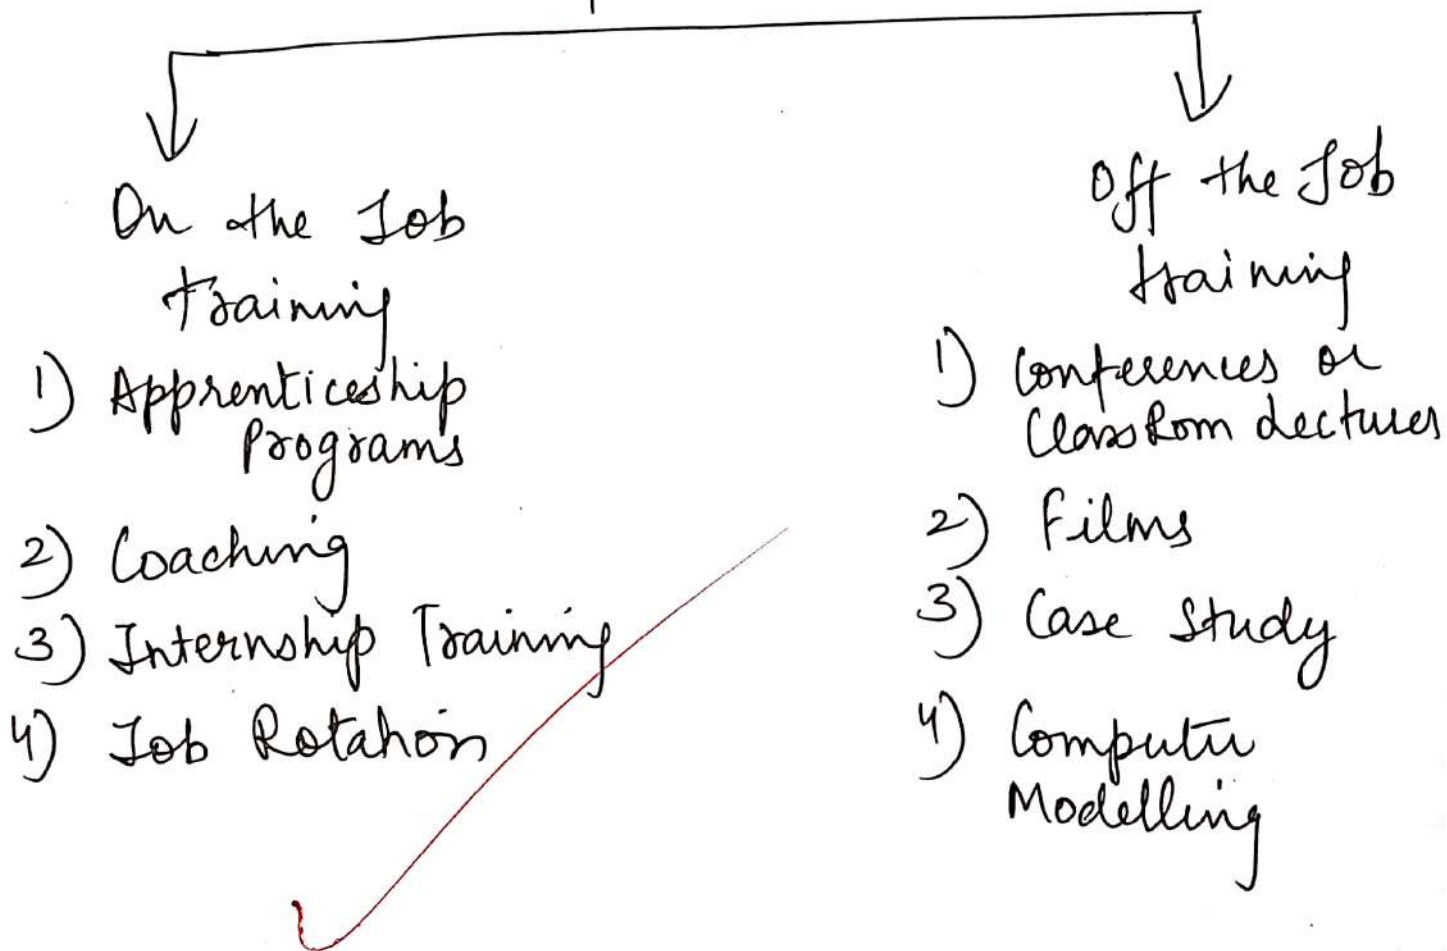 On the Job
Training
1) Apprenticeship
Programs
2) Coaching
3) Internship Training
4) Job Rotation
Off the Job
training
1) Conferences or
ClassRom Lectures
2) Films
3) Case Study
4) Computer
Modelling